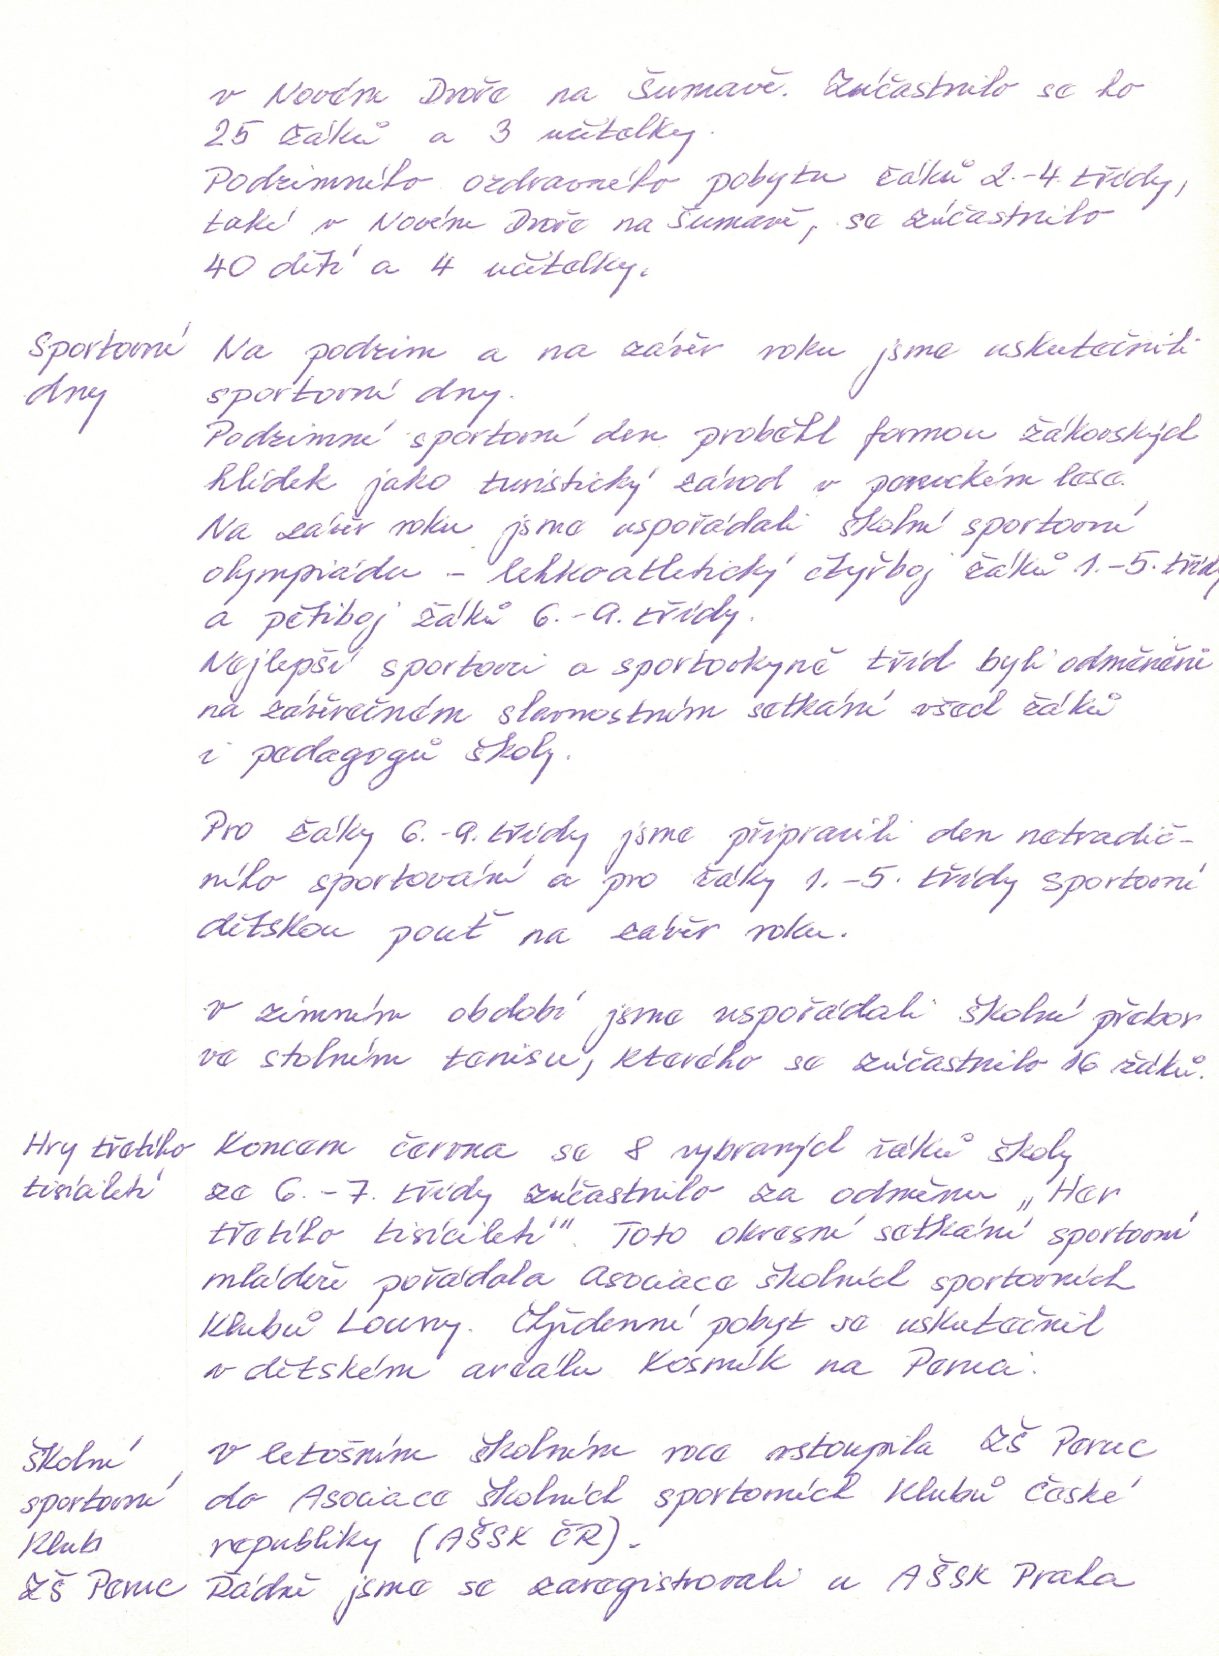 v Novém Dvoře na Šumavě. Zúčastnilo se ho
25 žáků a 3 učitelky.
Podzimního ozdravného pobytu žáků 2.-4. třídy,
také v Novém Dvoře na Šumavě, se zúčastnilo
40 dětí a 4 učitelky.
Sportovní
dny
Na podzim a na závěr roku jsme uskutečnili
sportovní dny.
Podzimní sportovní den proběhl formou žákovských
hlídek jako turistický závod v peruckém lese.
Na závěr roku jsme uspořádali školní sportovní
olympiádu - lehkoatletický čtyřboj žáků 1.-5. třídy
a pětiboj žáků 6.-9. třídy.
Nejlepší sportovci a sportovkyně tříd byli odměněni
na závěrečném slavnostním setkání všech žáků
i pedagogů školy.
Pro žáky 6.-9. třídy jsme připravili den netradič-
ního sportování a pro žáky 1.-5. třídy sportovní
dětskou pouť na závěr roku.
V zimním období jsme uspořádali školní přebor
ve stolním tenisu, kterého se zúčastnilo 16 žáků.
Hry třetího
tisíciletí
Koncem června se 8 vybraných žáků školy
ze 6.-7. třídy zúčastnilo za odměnu „Her
třetího tisíciletí". Toto okresní setkání sportovní
mládeže pořádala Asociace školních sportovních
klubů Louny. Čtyřdenní pobyt se uskutečnil
v dětském areálu Kosmík na Peruci.
Školní
sportovní
klub
ZŠ Peruc
V letošním školním roce vstoupila ZŠ Peruc
do Asociace školních sportovních klubů České
republiky (AŠSK ČR).
Řádně jsme se zaregistrovali u AŠSK Praha